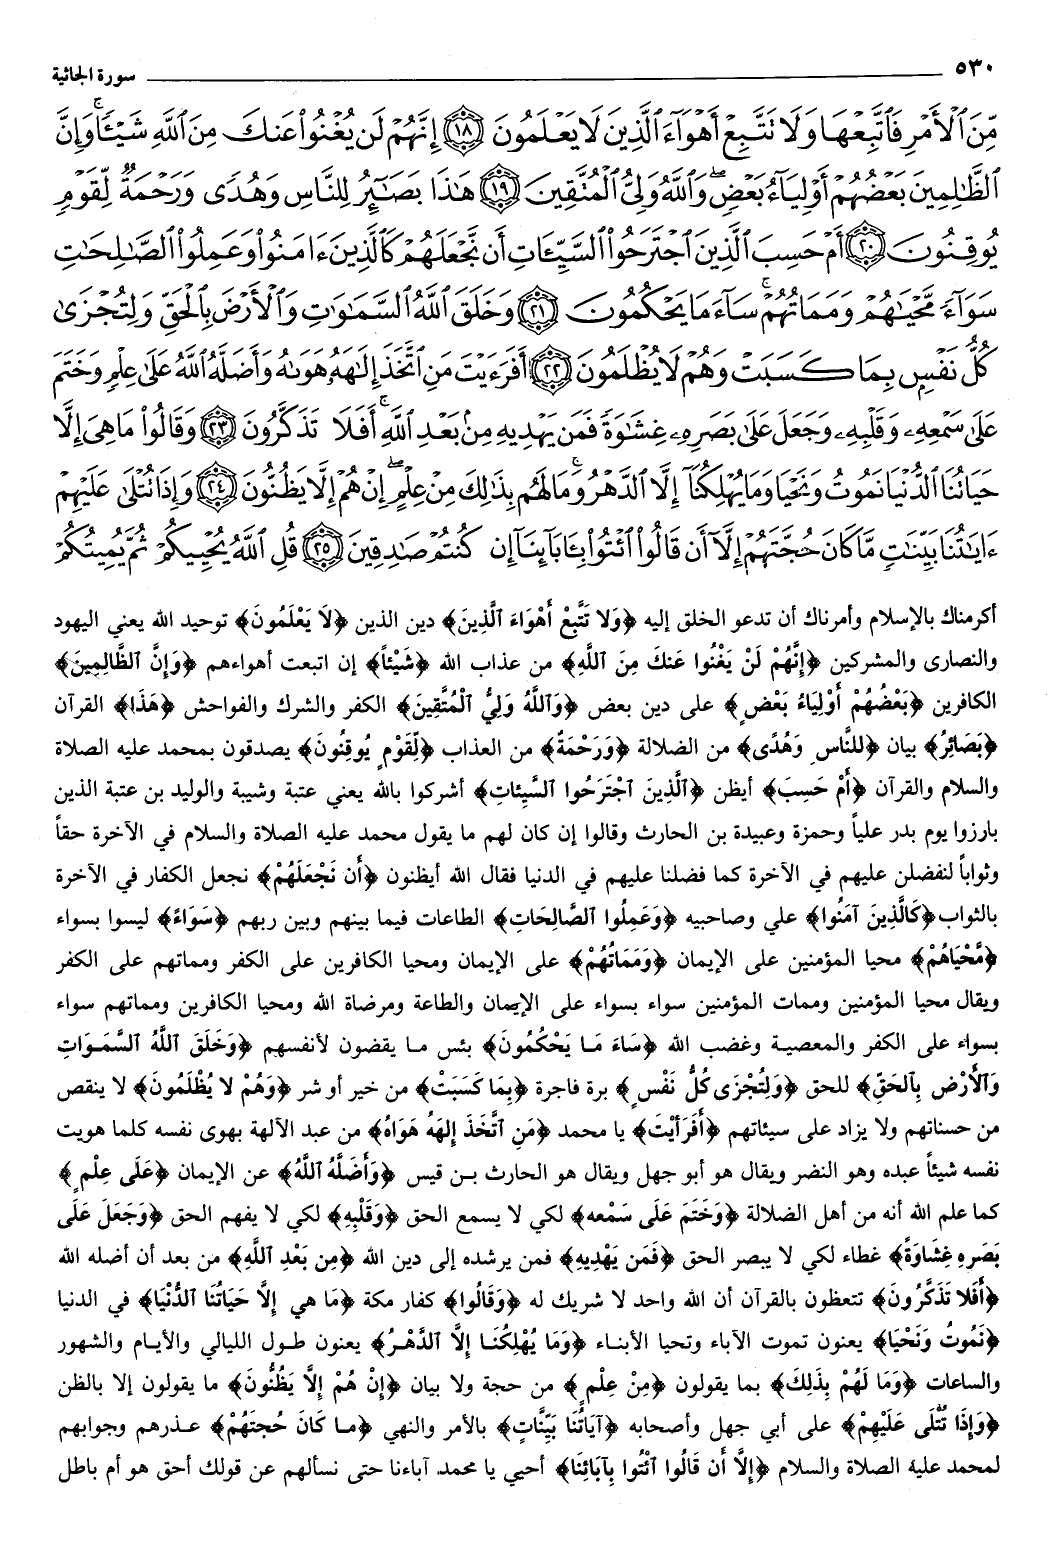 ٥٣٠ سورة الجاثية
مِّنَ ٱلْأَمْرِ فَٱتَّبِعْهَا وَلَا تَتَّبِعْ أَهْوَآءَ ٱلَّذِينَ لَا يَعْلَمُونَ ١٨ إِنَّهُمْ لَن يُغْنُوا۟ عَنكَ مِنَ ٱللَّهِ شَيْـًٔا ۚ وَإِنَّ
ٱلظَّٰلِمِينَ بَعْضُهُمْ أَوْلِيَآءُ بَعْضٍ ۖ وَٱللَّهُ وَلِىُّ ٱلْمُتَّقِينَ ١٩ هَٰذَا بَصَٰٓئِرُ لِلنَّاسِ وَهُدًى وَرَحْمَةٌ لِّقَوْمٍ
يُوقِنُونَ ٢٠ أَمْ حَسِبَ ٱلَّذِينَ ٱجْتَرَحُوا۟ ٱلسَّيِّـَٔاتِ أَن نَّجْعَلَهُمْ كَٱلَّذِينَ ءَامَنُوا۟ وَعَمِلُوا۟ ٱلصَّٰلِحَٰتِ
سَوَآءً مَّحْيَاهُمْ وَمَمَاتُهُمْ ۚ سَآءَ مَا يَحْكُمُونَ ٢١ وَخَلَقَ ٱللَّهُ ٱلسَّمَٰوَٰتِ وَٱلْأَرْضَ بِٱلْحَقِّ وَلِتُجْزَىٰ
كُلُّ نَفْسٍۭ بِمَا كَسَبَتْ وَهُمْ لَا يُظْلَمُونَ ٢٢ أَفَرَءَيْتَ مَنِ ٱتَّخَذَ إِلَٰهَهُۥ هَوَىٰهُ وَأَضَلَّهُ ٱللَّهُ عَلَىٰ عِلْمٍ وَخَتَمَ
عَلَىٰ سَمْعِهِۦ وَقَلْبِهِۦ وَجَعَلَ عَلَىٰ بَصَرِهِۦ غِشَٰوَةً فَمَن يَهْدِيهِ مِنۢ بَعْدِ ٱللَّهِ ۚ أَفَلَا تَذَكَّرُونَ ٢٣ وَقَالُوا۟ مَا هِىَ إِلَّا
حَيَاتُنَا ٱلدُّنْيَا نَمُوتُ وَنَحْيَا وَمَا يُهْلِكُنَآ إِلَّا ٱلدَّهْرُ ۚ وَمَا لَهُم بِذَٰلِكَ مِنْ عِلْمٍ ۖ إِنْ هُمْ إِلَّا يَظُنُّونَ ٢٤ وَإِذَا تُتْلَىٰ عَلَيْهِمْ
ءَايَٰتُنَا بَيِّنَٰتٍ مَّا كَانَ حُجَّتَهُمْ إِلَّآ أَن قَالُوا۟ ٱئْتُوا۟ بِـَٔابَآئِنَآ إِن كُنتُمْ صَٰدِقِينَ ٢٥ قُلِ ٱللَّهُ يُحْيِيكُمْ ثُمَّ يُمِيتُكُمْ
أكرمناك بالإسلام وأمرناك أن تدعو الخلق إليه ﴿وَلا تَتَّبِعْ أَهْوَاءَ ٱلَّذِينَ﴾ دين الذين ﴿لَا يَعْلَمُونَ﴾ توحيد الله يعني اليهود
والنصارى والمشركين ﴿إِنَّهُمْ لَنْ يَغْنُوا عَنكَ مِنَ ٱللَّهِ﴾ من عذاب الله ﴿شَيْئاً﴾ إن اتبعت أهواءهم ﴿وَإِنَّ ٱلظَّالِمِينَ﴾
الكافرين ﴿بَعْضُهُمْ أَوْلِيَاءُ بَعْضٍ﴾ على دين بعض ﴿وَٱللَّهُ وَلِيُّ ٱلْمُتَّقِينَ﴾ الكفر والشرك والفواحش ﴿هَذَا﴾ القرآن
﴿بَصَائِرُ﴾ بيان ﴿لِلنَّاسِ وَهُدًى﴾ من الضلالة ﴿وَرَحْمَةٌ﴾ من العذاب ﴿لِّقَوْمٍ يُوقِنُونَ﴾ يصدقون بمحمد عليه الصلاة
والسلام والقرآن ﴿أَمْ حَسِبَ﴾ أيظن ﴿ٱلَّذِينَ ٱجْتَرَحُوا ٱلسَّيِّئَاتِ﴾ أشركوا بالله يعني عتبة وشيبة والوليد بن عتبة الذين
بارزوا يوم بدر علياً وحمزة وعبيدة بن الحارث وقالوا إن كان لهم ما يقول محمد عليه الصلاة والسلام في الآخرة حقاً
وثواباً لنفضلن عليهم في الآخرة كما فضلنا عليهم في الدنيا فقال الله أيظنون ﴿أَن نَجْعَلَهُمْ﴾ نجعل الكفار في الآخرة
بالثواب ﴿كَالَّذِينَ آمَنُوا﴾ علي وصاحبيه ﴿وَعَمِلُوا ٱلصَّالِحَاتِ﴾ الطاعات فيما بينهم وبين ربهم ﴿سَوَاءً﴾ ليسوا بسواء
﴿مَّحْيَاهُمْ﴾ محيا المؤمنين على الإيمان ﴿وَمَمَاتُهُمْ﴾ على الإيمان ومحيا الكافرين على الكفر ومماتهم على الكفر
ويقال محيا المؤمنين وممات المؤمنين سواء بسواء على الإيمان والطاعة ومرضاة الله ومحيا الكافرين ومماتهم سواء
بسواء على الكفر والمعصية وغضب الله ﴿سَاءَ مَا يَحْكُمُونَ﴾ بئس ما يقضون لأنفسهم ﴿وَخَلَقَ ٱللَّهُ ٱلسَّمَوَاتِ
وَٱلْأَرْضِ بِٱلحَقِّ﴾ للحق ﴿وَلِتُجْزَى كُلُّ نَفْسٍ﴾ برة فاجرة ﴿بِمَا كَسَبَتْ﴾ من خير أو شر ﴿وَهُمْ لا يُظْلَمُونَ﴾ لا ينقص
من حسناتهم ولا يزاد على سيئاتهم ﴿أَفَرَأَيْتَ﴾ يا محمد ﴿مَنِ ٱتَّخَذَ إِلهَهُ هَوَاهُ﴾ من عبد الآلهة بهوى نفسه كلما هويت
نفسه شيئاً عبده وهو النضر ويقال هو أبو جهل ويقال هو الحارث بن قيس ﴿وَأَضَلَّهُ ٱللَّهُ﴾ عن الإيمان ﴿عَلَى عِلْمٍ﴾
كما علم الله أنه من أهل الضلالة ﴿وَخَتَمَ عَلَى سَمْعه﴾ لكي لا يسمع الحق ﴿وَقَلْبِهِ﴾ لكي لا يفهم الحق ﴿وَجَعَلَ عَلَى
بَصَرِهِ غِشَاوَةً﴾ غطاء لكي لا يبصر الحق ﴿فَمَن يَهْدِيهِ﴾ فمن يرشده إلى دين الله ﴿مِن بَعْدِ ٱللَّهِ﴾ من بعد أن أضله الله
﴿أَفَلا تَذَكَّرُونَ﴾ تتعظون بالقرآن أن الله واحد لا شريك له ﴿وَقَالُوا﴾ كفار مكة ﴿مَا هي إِلاَّ حَيَاتُنَا ٱلدُّنْيَا﴾ في الدنيا
﴿نَمُوتُ وَنَحْيَا﴾ يعنون تموت الآباء وتحيا الأبناء ﴿وَمَا يُهْلِكُنَا إِلاَّ ٱلدَّهْرُ﴾ يعنون طول الليالي والأيام والشهور
والساعات ﴿وَمَا لَهُمْ بِذَلِكَ﴾ بما يقولون ﴿مِنْ عِلْمٍ﴾ من حجة ولا بيان ﴿إِنْ هُمْ إِلاَّ يَظُنُّونَ﴾ ما يقولون إلا بالظن
﴿وَإِذَا تُتْلَى عَلَيْهِمْ﴾ على أبي جهل وأصحابه ﴿آيَاتُنَا بَيِّنَاتٍ﴾ بالأمر والنهي ﴿مَا كَانَ حُجتَهُمْ﴾ عذرهم وجوابهم
لمحمد عليه الصلاة والسلام ﴿إِلاَّ أَن قَالُوا ٱئْتُوا بِآبَائِنَا﴾ أحيي يا محمد آباءنا حتى نسألهم عن قولك أحق هو أم باطل